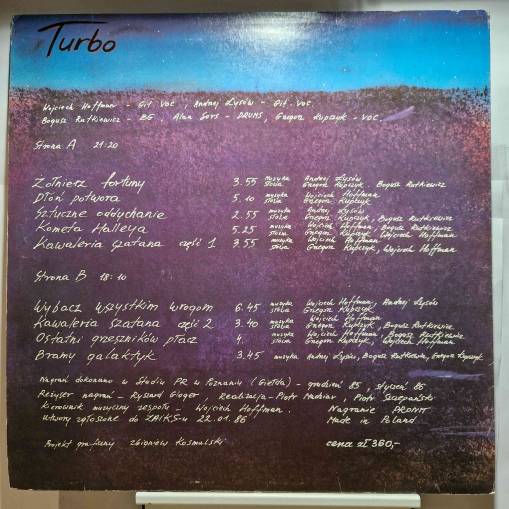 Turbo
Wojciech Hoffman - Git. Voc, Andrzej Łysów - Git. Voc.
Bogusz Rutkiewicz - BG, Alan Sors - DRUMS, Grzegorz Kupczyk - VOC.
Strona A 21:20
Żołnierz fortuny 3.55 muzyka Andrzej Łysów
słowa Grzegorz Kupczyk, Bogusz Rutkiewicz
Dłoń potwora 5.10 muzyka Wojciech Hoffman
słowa Grzegorz Kupczyk
Sztuczne oddychanie 2.55 muzyka Andrzej Łysów
słowa Grzegorz Kupczyk, Bogusz Rutkiewicz
Kometa Halleya 5.25 muzyka Wojciech Hoffman, Bogusz Rutkiewicz
słowa Grzegorz Kupczyk, Wojciech Hoffman
Kawaleria Szatana część 1 3.55 muzyka Wojciech Hoffman
słowa Grzegorz Kupczyk, Wojciech Hoffman
Strona B 18:10
Wybacz wszystkim wrogom 6.45 muzyka Wojciech Hoffman, Andrzej Łysów
słowa Grzegorz Kupczyk
Kawaleria szatana część 2 3.40 muzyka Wojciech Hoffman
słowa Grzegorz Kupczyk, Bogusz Rutkiewicz
Ostatni grzeszników płacz 4. muzyka Wojciech Hoffman, Bogusz Rutkiewicz
słowa Grzegorz Kupczyk, Wojciech Hoffman
Bramy galaktyk 3.45 muzyka Andrzej Łysów, Bogusz Rutkiewicz, Grzegorz Kupczyk
Nagrań dokonano w Studiu PR w Poznaniu (Giełda) - grudzień 85, styczeń 86
Reżyser nagrań - Ryszard Gloger, Realizacja - Piotr Madziar, Piotr Szczepański
Kierownik muzyczny zespołu - Wojciech Hoffman. Nagranie PRONIT
Utwory zgłoszone do ZAIKS-u 22.01.86 Made in Poland
Projekt graficzny Zbigniew Kosmalski cena zł 360,-